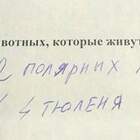 вотных, которые живу
2 полярных
4 тюленя